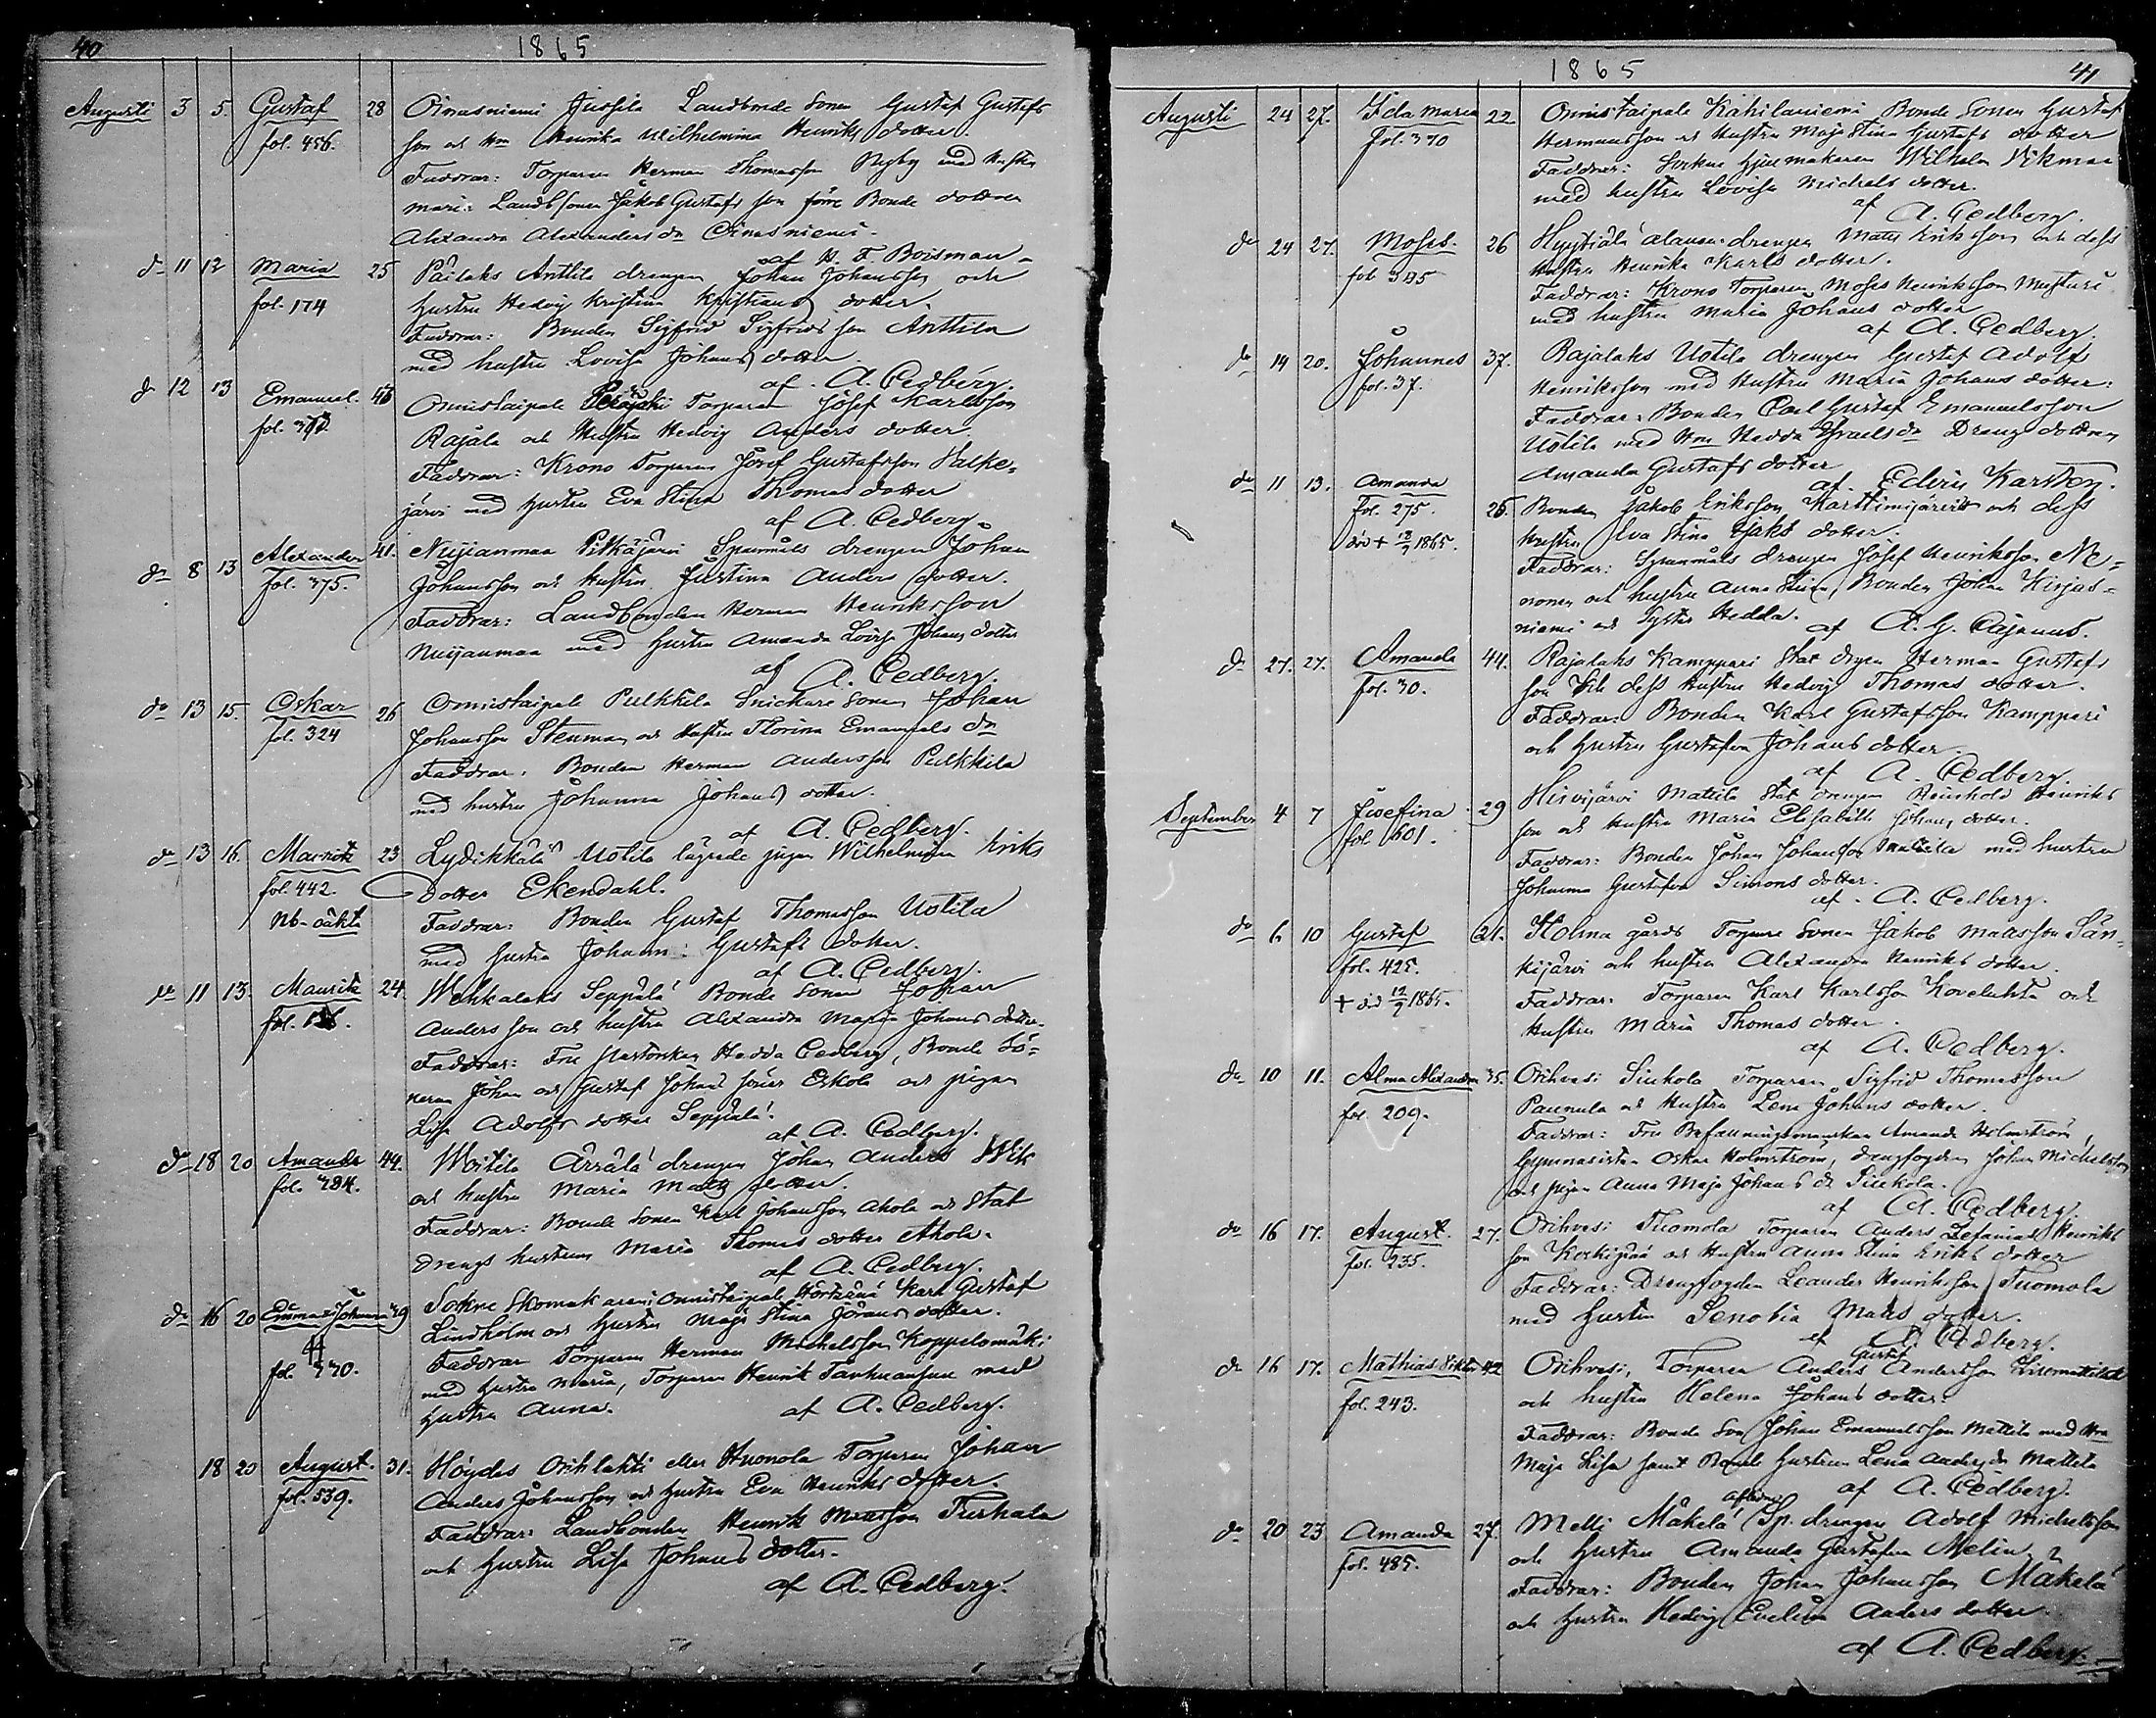 40
1865
Augusti 3 5. Gustaf 28 Oinasniemi Jussila Landbonde Sonen Gustaf Gustafs
fol. 456. son och Hm Henrika Wilhelmina Henriks dotter.
Faddrar: Torparen Herman Thomasson Nyby med hustru
Maria: Landb sonen Jakob Gustafs son förre Bonde dottren
Alexandra Alexanders dr Oinasniemi.
af K. F. Boisman
do 11 12 Maria 25 Pailaks Anttila drengen Johan Johansson och
fol. 174 hustru Hedvig Kristina Kristians dotter.
Faddrar: Bonden Sigfrid Sigfrids son Anttila
med hustru Lovisa Johans dotter
af A. Cedberg.
do 12 13 Emanuel. Onnistaipale Torparen Josef Karlsson
Rajala och Hustru Hedvig Anders dotter
Faddrar: Krono Torparen Josef Gustafsson Valke-
järvi med hustru Eva Stina Thomas dotter
af A. Cedberg.
do 8 13 Alexander 41. Nuijanmaa Pitkäjärvi Spanmåls drengen Johan
fol. 375. Johansson och hustru Justina Anders dotter.
Faddrar: Landbonden Herman Henriksson
Nuijanmaa med hustru Amanda Lovisa Johans dotter
af A. Cedberg.
do 13 15. Oskar 26 Onnistaipale Pulkkila Snickare Sonen Johan
fol. 324 Johansson Stenman och Hustru Florina Emanuels dr
Faddrar: Bonden Herman Andersson Pulkkila
med hustru Johanna Johans dotter.
af A. Cedberg.
do 13 16. Mauritz 23 Lydikkälä Uotila lägrade pigan Wilhelmina Eriks
fol. 442. dotter Ekendahl.
Nb-oäkta Faddrar: Bonden Gustaf Thomasson Uotila
med hustru Johanna Gustafs dotter.
af A. Cedberg.
do 11 13. Mauritz 24. Wehkalaks Seppälä Bonde Sonen Johan
Anders son och hustru Alexandra Maria Johans dotter.
Faddrar: Fru Pastorskan Hedda Cedberg, Bonde Sö-
nerna Johan och Gustaf Johans söner Eskola och pigan
Lisa Adolfs dotter Seppälä.
af A. Cedberg.
do 18 20 Amanda 44. Woitila Ärrälä drengen Johan Anders Wik
fol. 384. och hustru Maria Matts dotter.
Faddrar: Bonde Sonen Karl Johansson Ahola och Stat
drengs hustrun Maria Thomas dotter Ahola.
af A. Cedberg.
do 16 20 Emma Johanna 39 Sokne Skomakaren i Onnistaipale Karl Gustaf
Lindholm och hustru Maja Stina Jörans dotter.
fol. 330. Faddrar Torparen Herman Michelsson Koppelomäki
med hustru Maria, Torparen Henrik med
hustru Anna. af A. Cedberg.
18 20 August. 31. Höydes Orihlahti eller Huonola Torparen Johan
fol. 539. Anders Johansson och hustru Eva Henriks dotter.
Faddrar: Landbonden Henrik Mattsson Turkala
och hustru Lisa Johans dotter.
af A. Cedberg.
1865
41
Augusti 24 27. Ida Maria 22 Onnistaipale Kahilaniemi Bonde Sonen Gustaf
fol. 370 Hermansson och Hustru Maja Stina Gustafs dotter
Faddrar: Sockne hjulmakaren Wilhelm Vikman
med hustru Lovisa Michels dotter.
af A. Cedberg.
do 24 27. Moses. 26 Hyytiälä drengen Mats Eriksson och dess
hustru Henrika Karls dotter.
Faddrar: Krono Torparen Moses Henriksson Musturi
med hustru Maria Johans dotter
af A. Cedberg.
do 14 20. Johannes 37. Rajalaks Uotila drengen Gustaf Adolf
fol. 37. Henriksson med Hustru Maria Johans dotter.
Faddrar: Bonden Carl Gustaf Emanuelsson
Uotila med Hm Hedda Israels dr Dreng dottren
Amanda Gustafs dotter
af Edvin Karsten.
do 11 13. Amanda 26. Bonden Jakob Eriksson och dess
fol. 275. hustru Eva Stina Isaks dotter.
död + 18/9 1865. Faddrar: Spanmåls drengen Josef Henriksson Ne-
nonen och hustru Anna Stina, Bonden Johan Kirjas-
niemi och Syster Hedda.
af A. G. Cajanus.
do 27. 27. Amanda 44. Rajalaks Kamppari Stat drgen Herman Gustafs
fol. 30. son dess hustru Hedvig Thomas dotter.
Faddrar: Bonden Karl Gustafsson Kamppari
och hustru Gustafva Johans dotter.
af A. Cedberg.
September 4 7 Josefina 29 Hirvijärvi Mattila Stat drengen Reinhold Henriks
fol. 601. son och hustru Maria Elisabeth Johans dotter.
Faddrar: Bonden Johan Johansson Mattila med hustru
Johanna Gustafva Simons dotter.
af A. Cedberg.
do 6 10 Gustaf 21. Holma gårds Torpare Sonen Jakob Matsson Sän-
fol. 425. kijärvi och hustru Alexandra Henriks dotter.
+ död 12/9 1865. Faddrar: Torparen Karl Karlsson Kovelahti och
Hustru Maria Thomas dotter.
af A. Cedberg.
do 10 11. Alma Alexandra 35. Orihvesi Siukola Torparen Sigfrid Thomasson
fol. 209. Pannula och Hustru Lena Johans dotter.
Faddrar: Fru Befallningsmanskan Amanda Holmström,
Gymnasisten Oskar Holmström, drengfogden Johan Michelsson
och pigan Anna Maja Johans dr Siukola.
af A. Cedberg.
do 16 17. August. 27. Orihvesi Tuomola Torparen Anders Zefanias Henriks
fol. 235. son och Hustru Anna Stina Eriks dotter
Faddrar: Drengfogden Leander Henriksson Tuomola
med Hustru Senobia Mats dotter.
af A. Cedberg.
do 16 17. Mathias Viktor 42 Orihvesi, Torparen Anders Gustaf Andersson
fol. 243. och hustru Helena Johans dotter.
Faddrar: Bonde Son Johan Emanuelsson Mattila med Hm
Maja Lisa samt Bonde hustrun Lena Anders dr Mattila
af A. Cedberg.
do 20 23 Amanda 27. Melli Mäkelä aflidne Sp. drengen Adolf Michelsson
fol. 485. och hustru Amanda Gustafva Melin
Faddrar: Bonden Johan Johansson Mäkelä
och hustru Hedvig Evelina Anders dotter
af A. Cedberg.